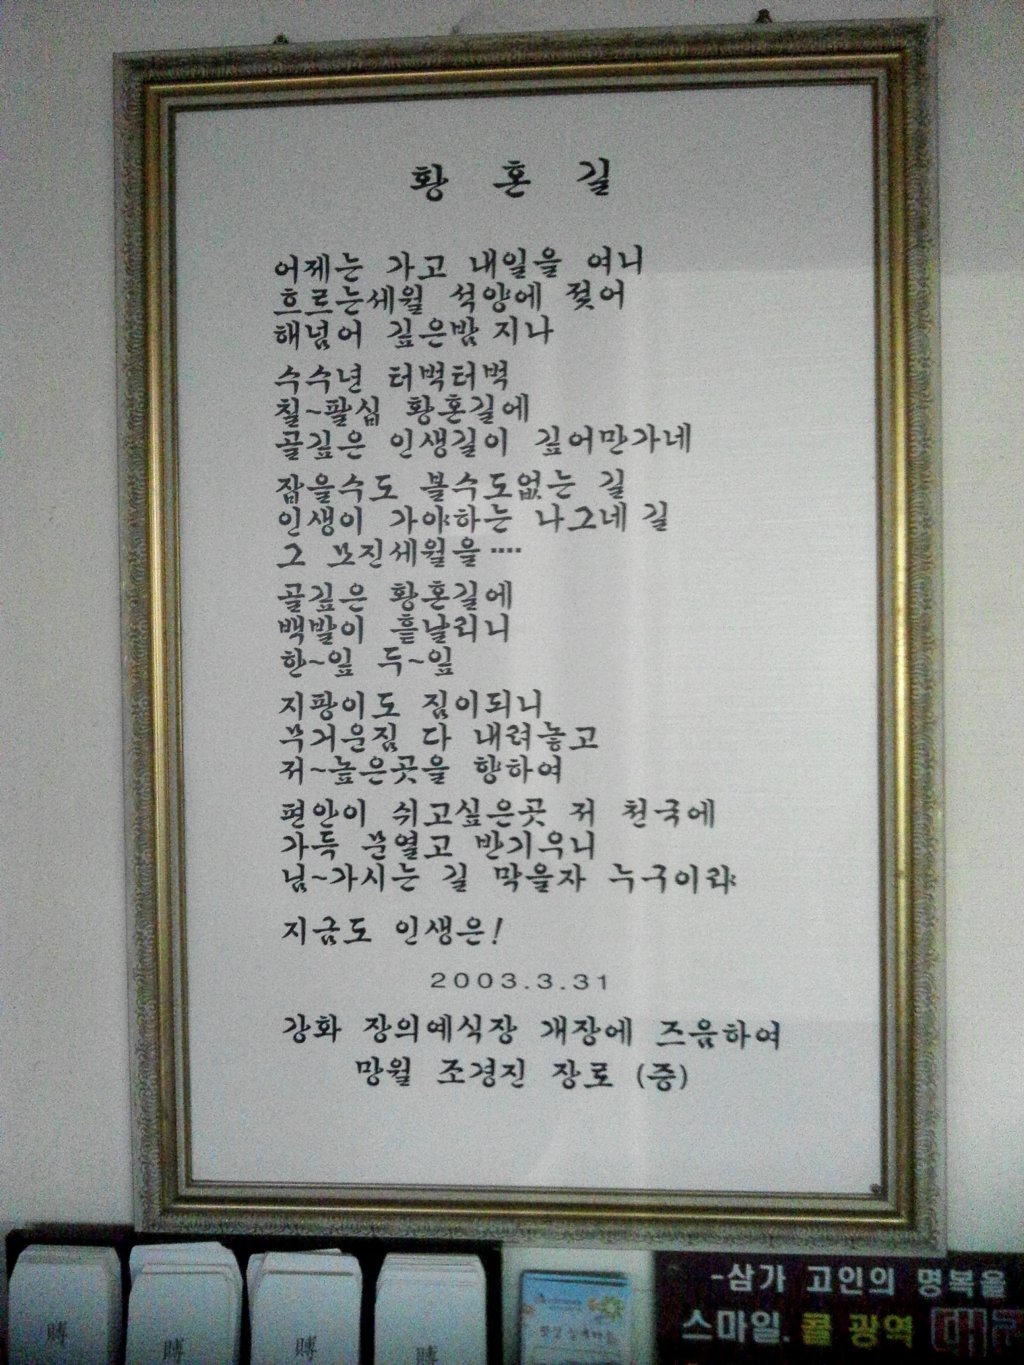 황 혼 길
어제는 가고 내일을 여니
흐르는세월 석양에 젖어
해넘어 깊은밤 지나
수수년 터벅터벅
칠~팔십 황혼길에
골깊은 인생길이 깊어만가네
잡을수도 볼수도없는 길
인생이 가야하는 나그네 길
그 모진세월을 ····
골깊은 황혼길에
백발이 흩날리니
한~잎 두~잎
지팡이도 짐이되니
무거운짐 다 내려놓고
저~높은곳을 향하여
편안이 쉬고싶은곳 저 천국에
가득 문열고 반기우니
님~가시는 길 막을자 누구이랴
지금도 인생은!
2003.3.31
강화 장의예식장 개장에 즈음하여
망월 조경진 장로 (증)
-삼가 고인의 명복을
스마일. 콜 광역
賻 賻 賻 賻